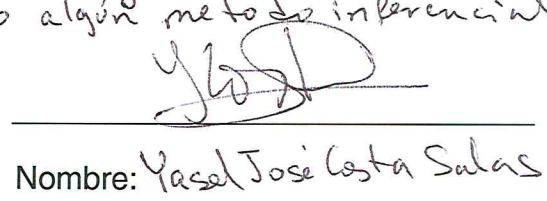 o algún metodo inferencial
Nombre: Yasel José Costa Salas